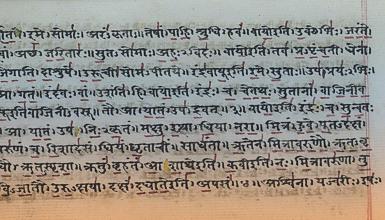 इमे सोमाः। अरंऽकृताः। तेषां। पाहि। श्रुधि। हवं। वायो इति। उक्थेभिः। जरंते
अच्छ। जरितारः। सुतऽसोमाः। अहःऽविदः। वायो इति। तव। प्रऽपृंचती। धेना
जिगाति। दाशुषे। उरूची। सोमऽपीतये। इंद्रवायू इति। इमे। सुताः। उप। प्रयःऽभिः
आ। गतं। इंदवः। वां। उशंति। हि। वायो इति। इंद्रः। च। चेतथः। सुतानां। वाजिनीव
सू इति वाजिनीऽवसू। तौ। आ। यातं। उप। द्रवत्। ३। वायो इति। इंद्रः। च। सुन्वतः
आ। यातं। उप। निःऽकृतं। मक्षु। इत्था। धिया। नरा। मित्रं। हुवे। पूतऽदक्षं
वरुणं। च। रिशादसं। धियं। घृताचीं। साधंता। ऋतेन। मित्रावरुणौ। ऋतऽवृ
धौ। ऋतऽस्पृशा। क्रतुं। बृहंतं। आशाथे इति। कवी इति। नः। मित्रावरुणा। तु
विऽजातौ। उरुऽक्षया। दक्षं। दधाते इति। अपसं। ४। अश्विना। यज्वरीः। इषः